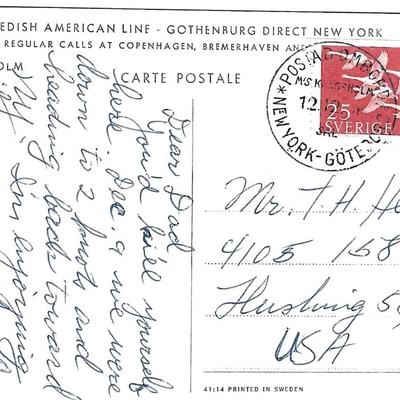 EDISH AMERICAN LINE - GOTHENBURG DIRECT NEW YORK
REGULAR CALLS AT COPENHAGEN, BREMERHAVEN AND
OLM
CARTE POSTALE
POSTAL OMBORD
M/S KUNGSHOLM
12.
NEW YORK-GÖTEBO
25
SVERIGE
Dear Dad
You'd kill yourself
here. Dec. 9 we were
down to 2 knots and
heading back toward
N.Y. I'm enjoying
Mr. T. H. He
4105 158
Flushing 58,
USA
41:14 PRINTED IN SWEDEN